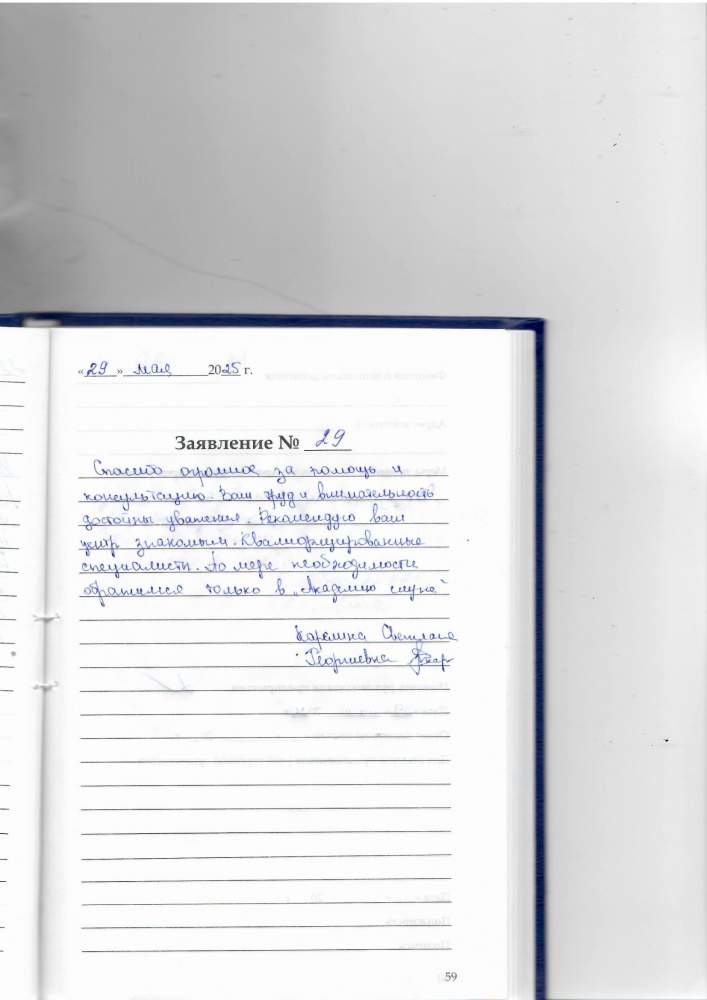 «29» мая 2025 г.
Заявление № 29
Спасибо огромное за помощь и
консультацию. Ваш труд и внимательность
достойны уважения. Рекомендую ваш
центр знакомым. Квалифицированные
специалисты. По мере необходимости
обратимся только в „Академию слуха"
Карелина Светлана
Георгиевна
59